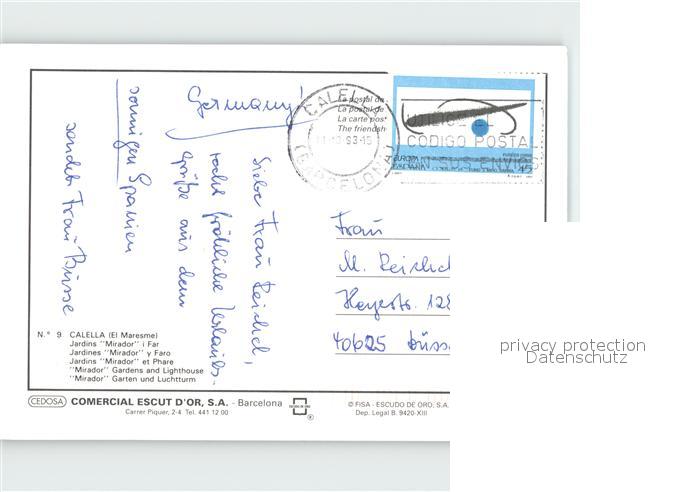 Germany!
Liebe Frau Reichel,
recht fröhliche Urlaubs-
grüße aus dem
sonnigen Spanien
sendet Frau Büsse
La postal de
La postal de
La carte pos
The friendsh
CALELLA
93-15
(BARCELONA)
CODIGO POSTAL
EN SUS ENVIOS
EUROPA
45
Frau
M. Reichel
Heyestr. 128
40625 Düss
N.° 9 CALELLA (El Maresme)
Jardins "Mirador" i Far
Jardines "Mirador" y Faro
Jardins "Mirador" et Phare
"Mirador" Gardens and Lighthouse
"Mirador" Garten und Luchtturm
CEDOSA COMERCIAL ESCUT D'OR, S.A. - Barcelona
Carrer Piquer, 2-4 Tel. 441 12 00
© FISA - ESCUDO DE ORO, S.A.
Dep. Legal B. 9420-XIII
privacy protection
Datenschutz